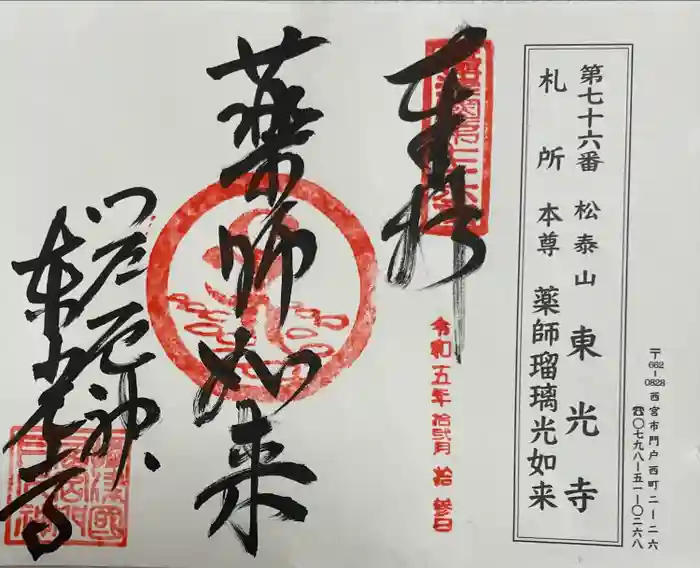 〒662-0828 西宮市門戸西町二ー二六
☎〇七九八ー五一ー〇二六八
第七十六番 松泰山 東光寺
札所本尊 薬師瑠璃光如来
奉拝
令和五年 拾弐月 拾参日
薬師如来
門戸厄神
東光寺